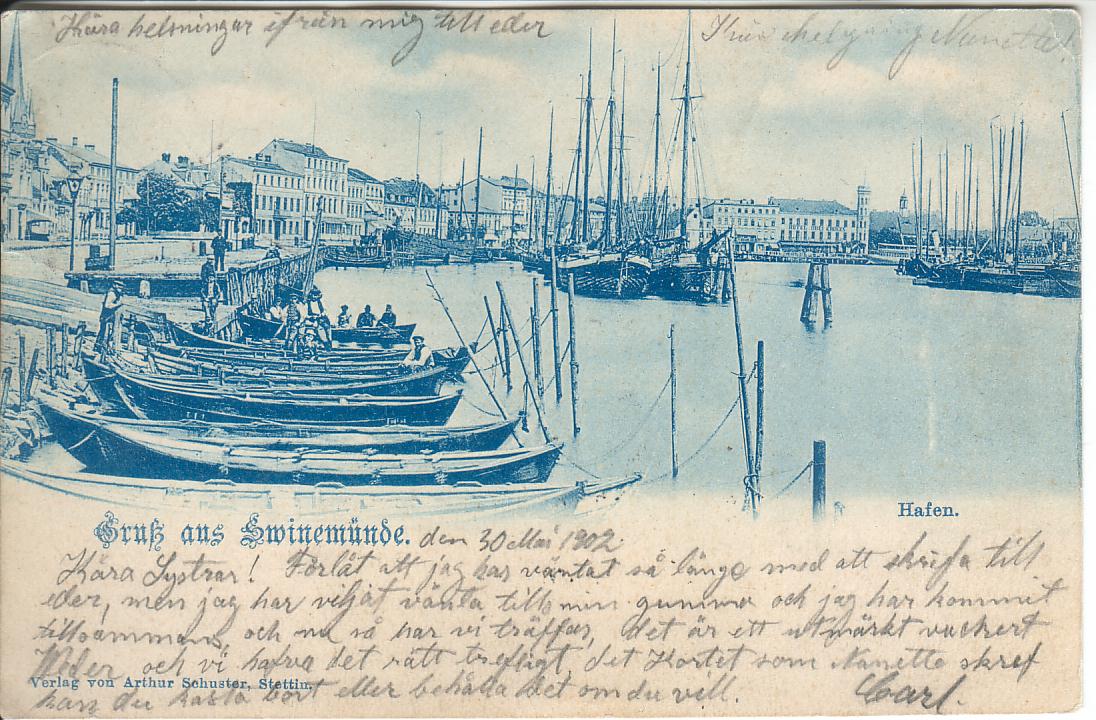 Kära helsningar ifrån mig till eder
Kära helgning Nanette!
Hafen.
Gruß aus Swinemünde. den 30 Mai 1902
Kära Systrar! Förlåt att jag har väntat så länge med att skrifa till
eder, men jag har veljat vänta tills min gumma och jag har kommit
tillsammans, och nu så har vi träffas, det är ett utmärkt vackert
Weder, och vi hafva det rätt trefligt, det Kortet som Nanette skref
Verlag von Arthur Schuster, Stettin.
kan du kasta bort eller behålla det om du vill. Carl.